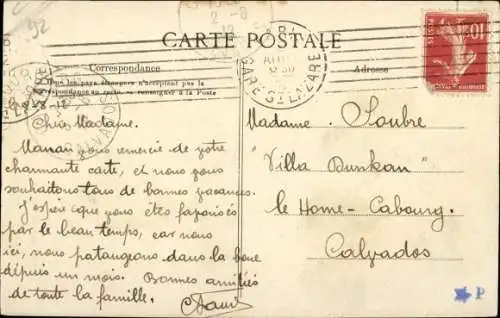 CARTE POSTALE
Correspondance
Tous les pays étrangers n'acceptent pas la
correspondance au recto. — renseigner à la Poste
Adresse
GARE St LAZARE
10c
Chère Madame.
Maman vous remercie de votre
charmante carte, et nous vous
souhaitons tous de bonnes vacances.
J'espère que vous êtes favorisés
par le beau temps, car nous
ici, nous pataugeons dans la boue
depuis un mois. Bonnes amitiés
de toute la famille.
Madame Soubre
"Villa Dunkan"
le Home-Cabourg.
Calvados
P